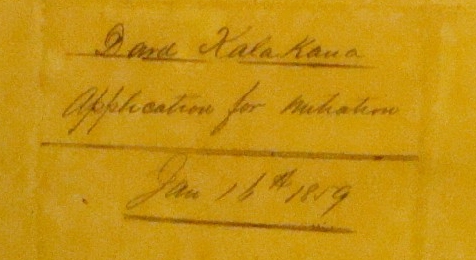 David Kalakaua
Application for Initiation
Jan 16th 1859